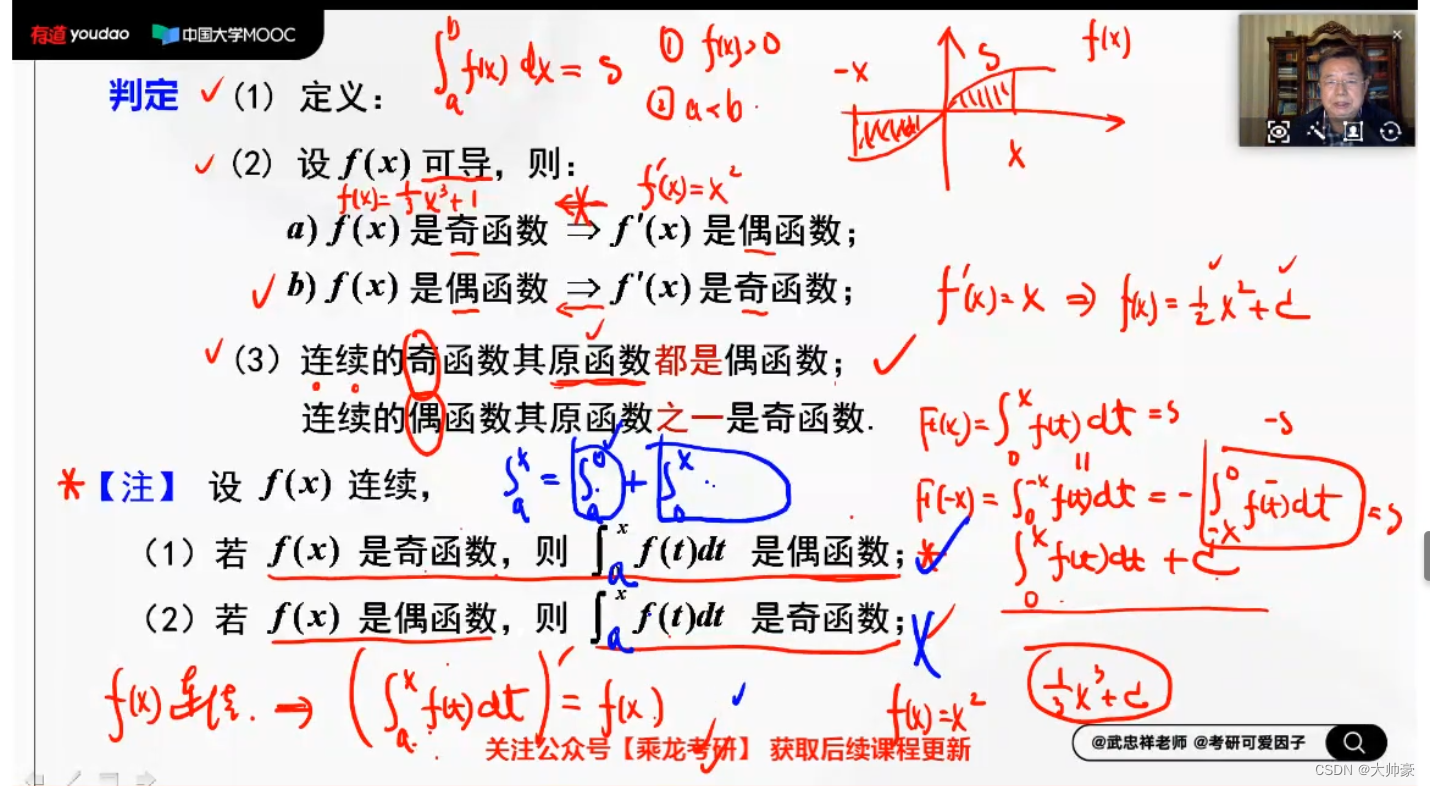 有道 youdao 中国大学MOOC
∫_a^b f(x) dx = S
① f(x)>0
② a<b
-x S f(x)
x
判定 (1) 定义：
(2) 设 f(x) 可导，则：
f(x)=1/3 x³+1
f'(x)=x²
a) f(x) 是奇函数 ⇒ f'(x) 是偶函数；
b) f(x) 是偶函数 ⇒ f'(x) 是奇函数；
f'(x)=x ⇒ f(x)=1/2 x²+C
(3) 连续的奇函数其原函数都是偶函数；
连续的偶函数其原函数之一是奇函数.
F(x)=∫_0^x f(t)dt =S
-S
*【注】 设 f(x) 连续，
∫_a^x = ∫_a^0 + ∫_0^x
F(-x)=∫_0^{-x} f(t)dt = -∫_{-x}^0 f(t)dt =S
(1) 若 f(x) 是奇函数，则 ∫_a^x f(t)dt 是偶函数；*
∫_0^x f(t)dt + C
(2) 若 f(x) 是偶函数，则 ∫_a^x f(t)dt 是奇函数；
f(x) 连续. ⇒ (∫_a^x f(t)dt)' = f(x)
f(x)=x²
1/3 x³+C
关注公众号【乘龙考研】 获取后续课程更新
@武忠祥老师 @考研可爱因子
CSDN @大帅豪